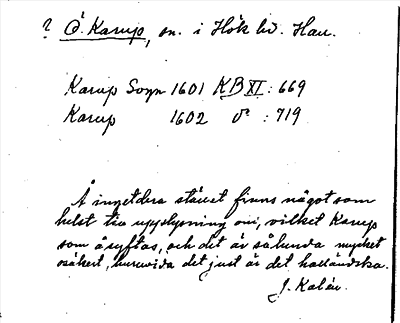 ? Ö. Karup, sn. i Hök hd. Hall.
Karup Sogn 1601 KB XI : 669
Karup 1602 dº : 719
Å ingetdera stället finns något som
helst till upplysning om, vilket Karup
som åsyftas, och det är sålunda mycket
osäkert, huruvida det just är det halländska.
J. Kalén.